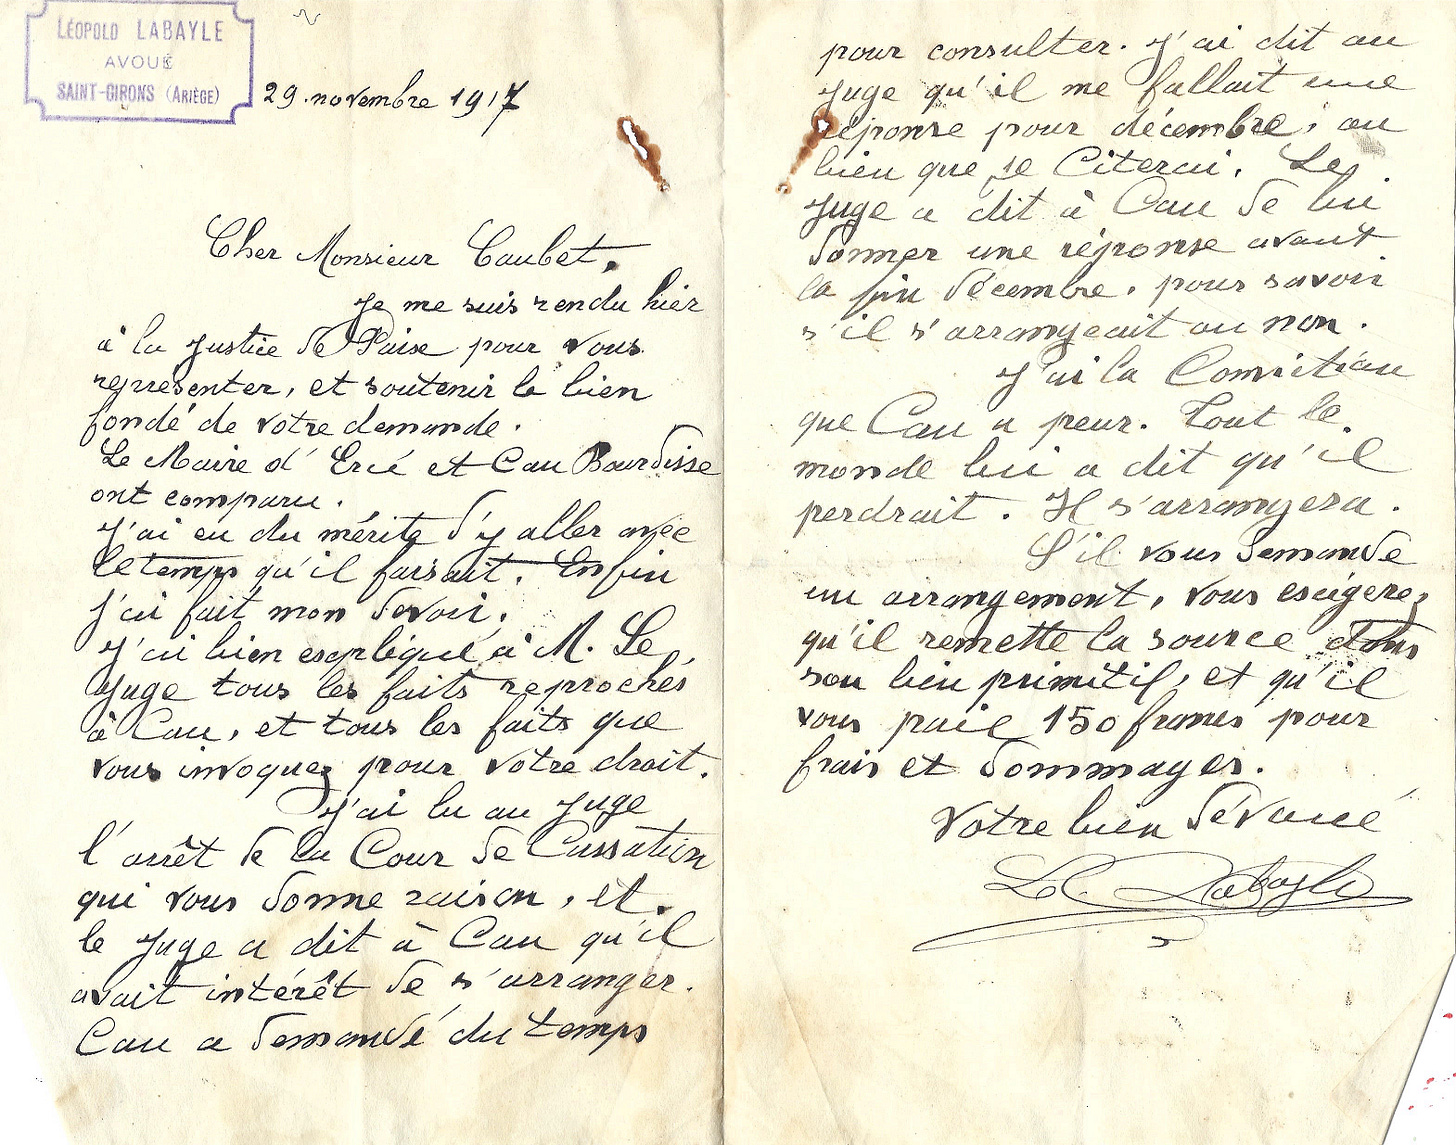 LÉOPOLD LABAYLE
AVOUÉ
SAINT-GIRONS (ARIÈGE)
29 novembre 1917
Cher Monsieur Caubet,
Je me suis rendu hier
à la Justice de Paise pour vous
représenter, et soutenir le bien
fondé de votre demande.
Le Maire d'Ercé et Cau Bourdisse
ont comparu.
J'ai eu du mérite d'y aller avec
le temps qu'il faisait. Enfin
j'ai fait mon devoir.
J'ai bien expliqué à M. Le
Juge tous les faits reprochés
à Cau, et tous les faits que
vous invoquez pour votre droit.
J'ai lu au Juge
l'arrêt de la Cour de Cassation
qui vous donne raison, et
le Juge a dit à Cau qu'il
avait intérêt de s'arranger.
Cau a demandé du temps
pour consulter. J'ai dit au
Juge qu'il me fallait une
réponse pour décembre, ou
bien que je Citerai. Le
Juge a dit à Cau de lui
donner une réponse avant
la fin décembre, pour savoir
s'il s'arrangeait ou non.
J'ai la Conviction
que Cau a peur. Tout le
monde lui a dit qu'il
perdrait. Il s'arrangera.
S'il vous demande
un arrangement, vous exigerez
qu'il remette la source dans
son lieu primitif, et qu'il
vous paie 150 francs pour
frais et dommages.
Votre bien dévoué
L. Labayle